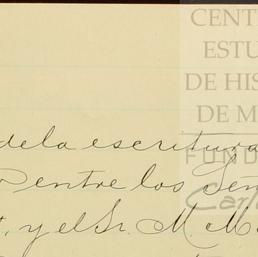 CENT
ESTU
DE HIS
DE M
FUND
Carl
de la escritura
entre los Señ
, y el Sr. M. M